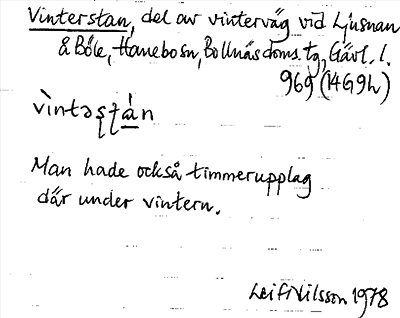 Vinterstan, del av vinterväg vid Ljusnan
& Böle, Hanebosn, Bollnäs doms. tg, Gävl. l.
969 (14G9h)
vìntəʂʈà̱n
Man hade också timmerupplag
där under vintern.
Leif Nilsson 1978